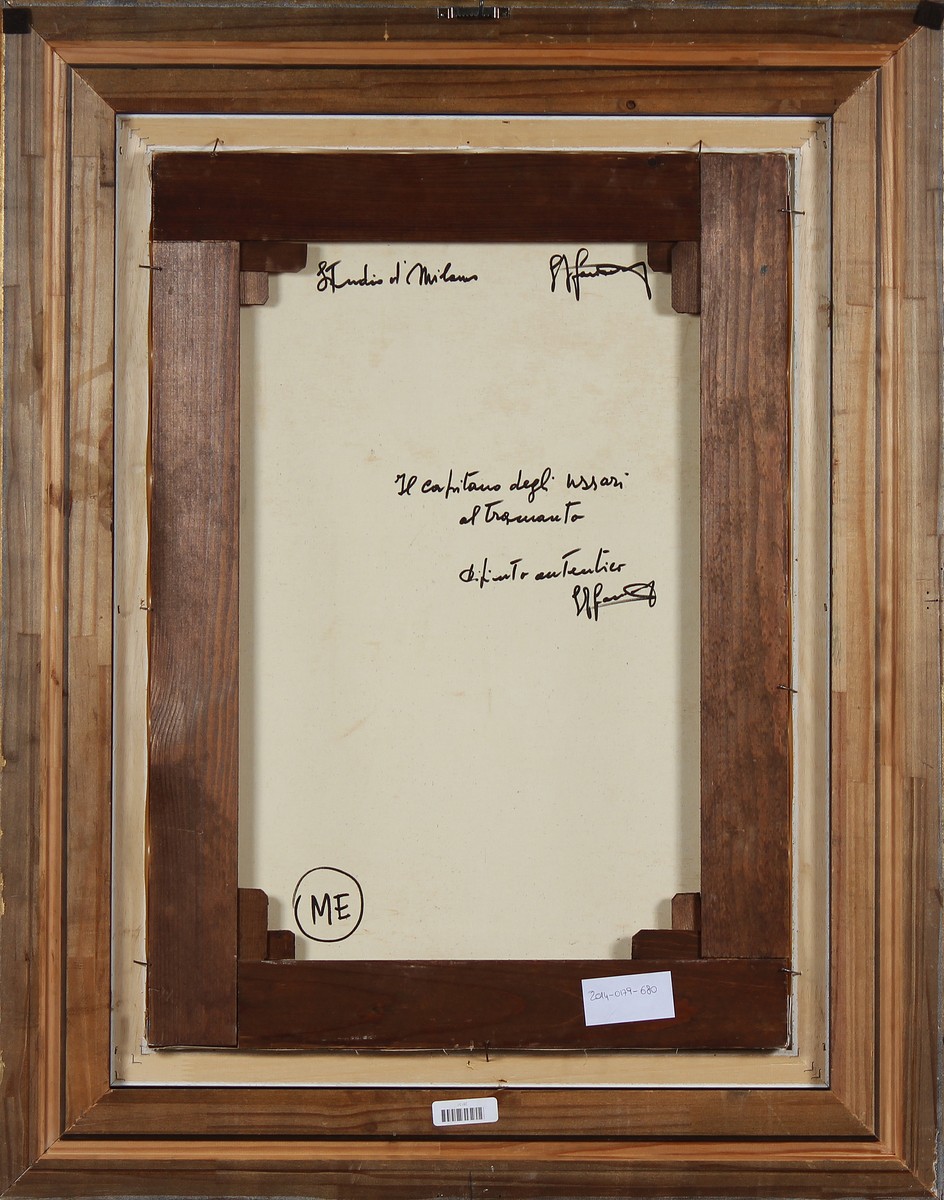 Studio d' Milano
Il capitano degli ussari
al tramonto
dipinto autentico
ME
2014-0179-680